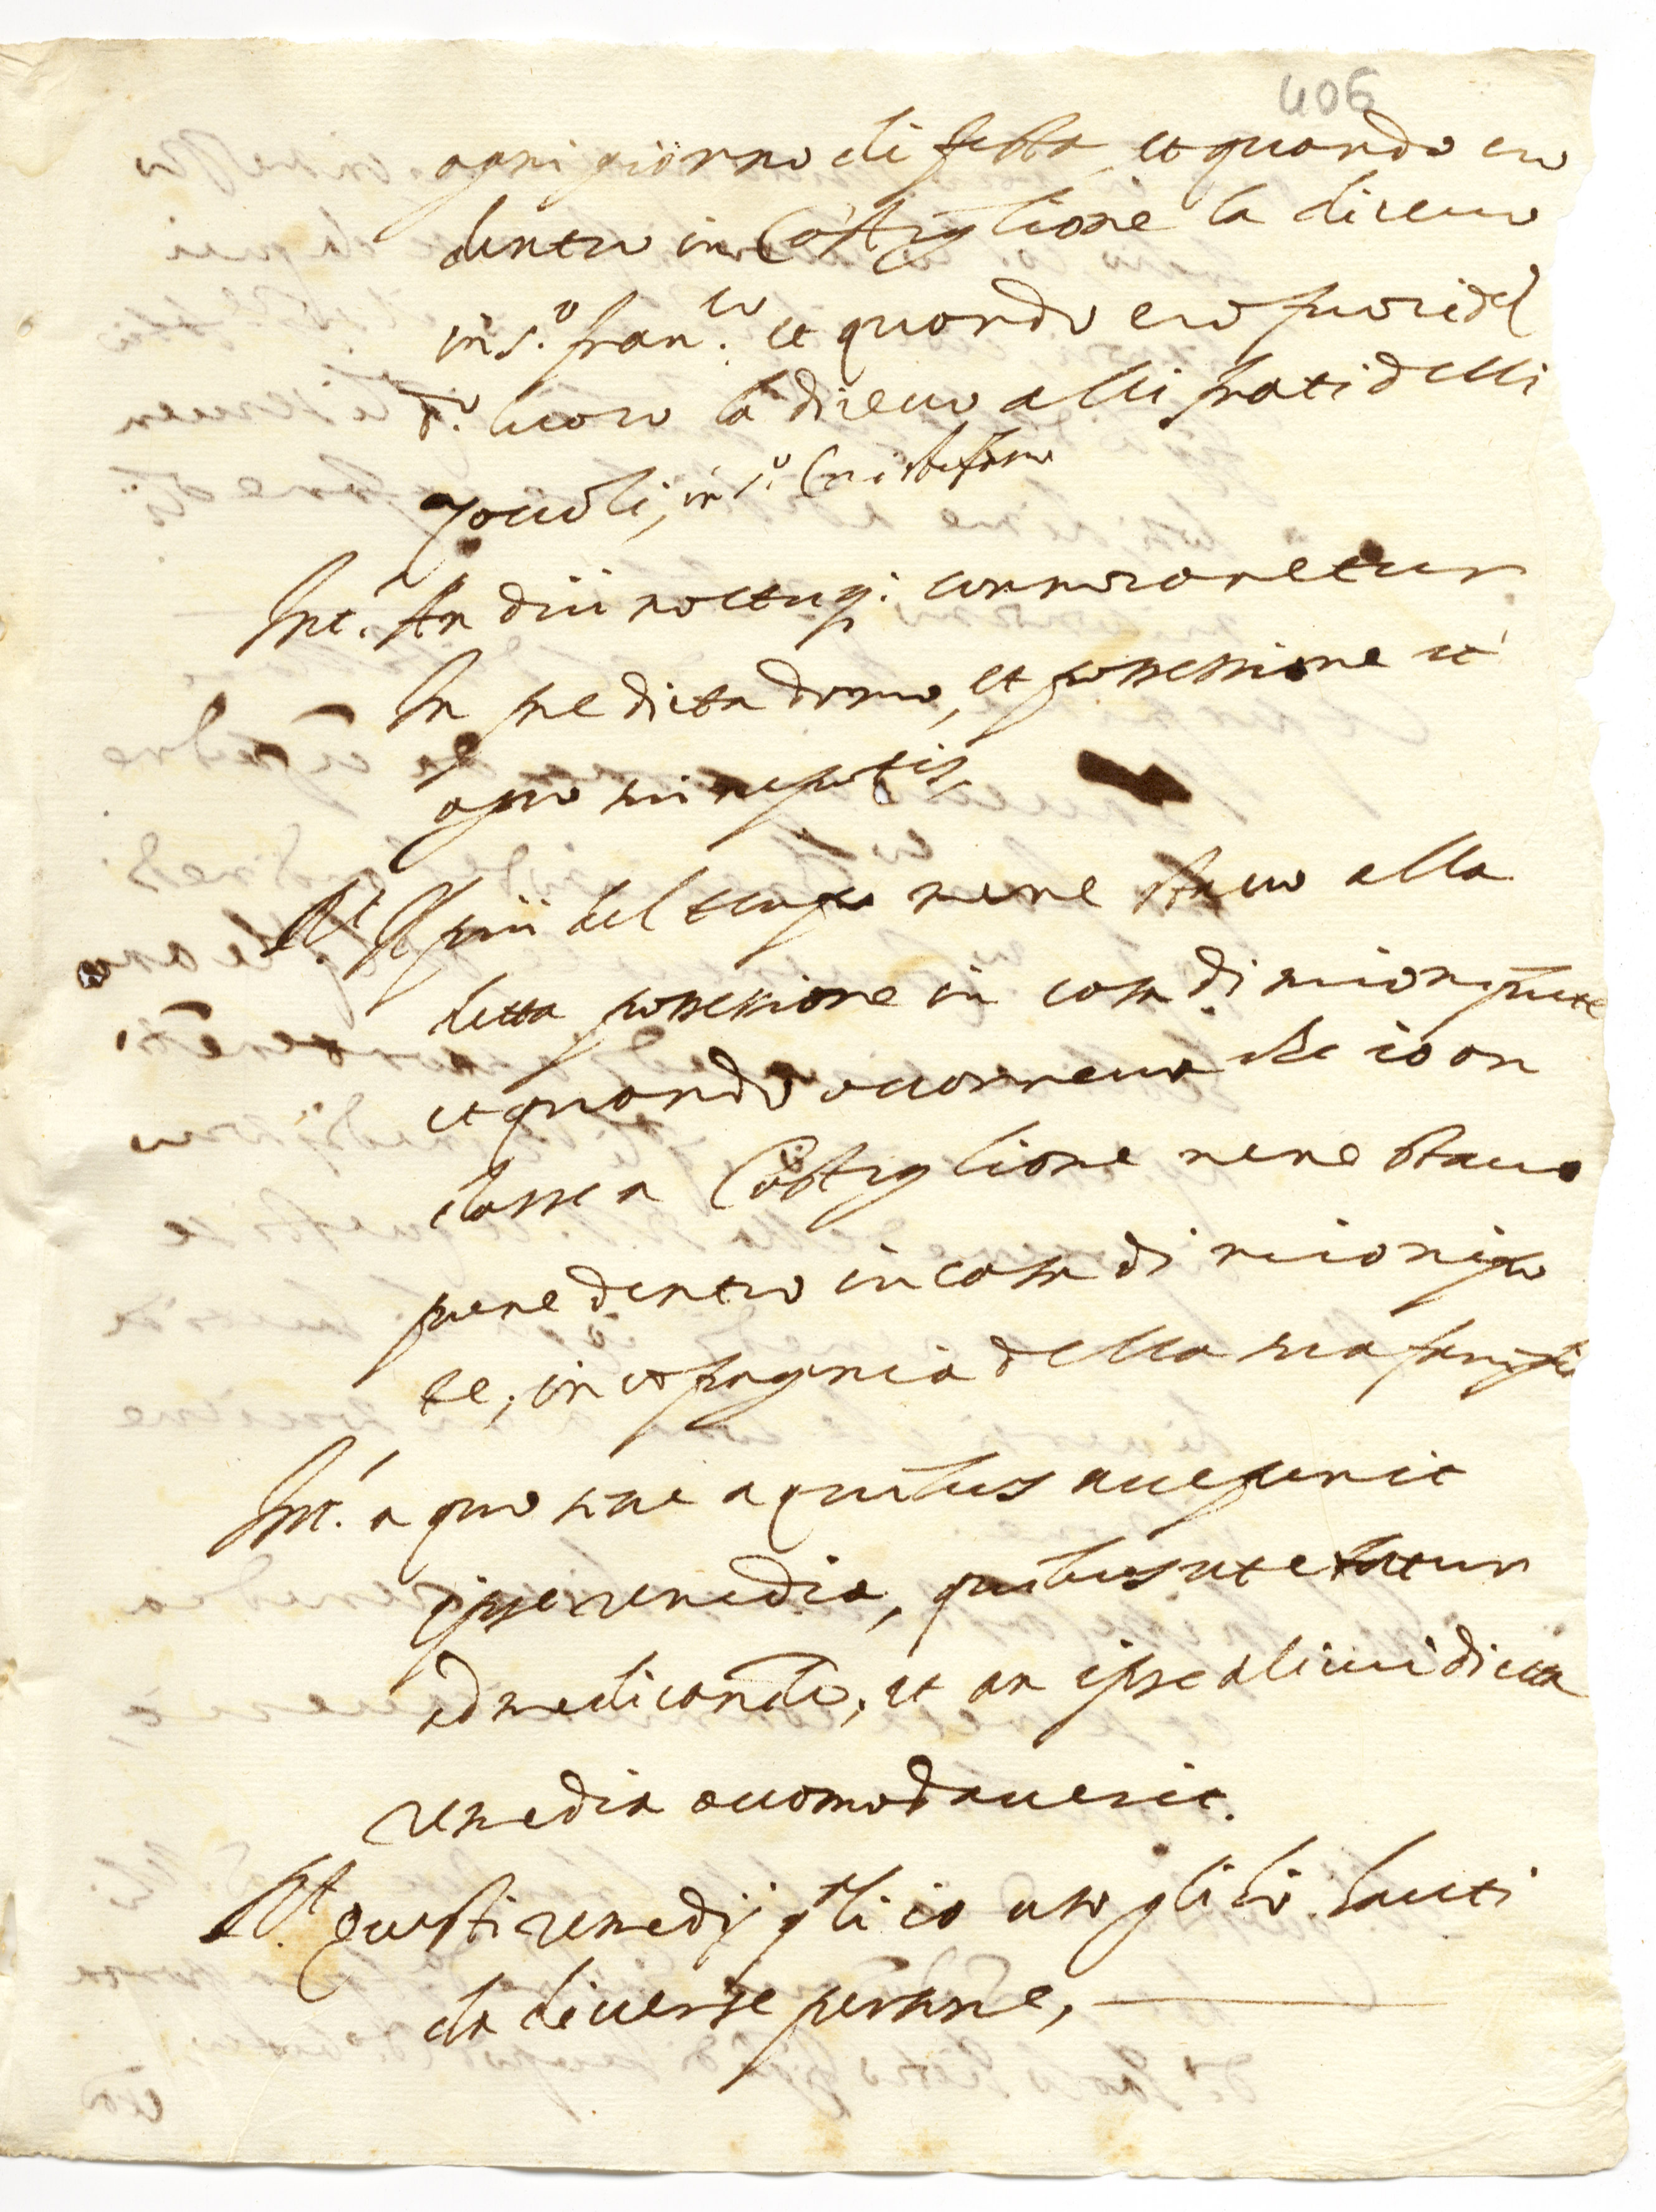 406
ogni giorno di festa, et quando ero
dentro in Castiglione la dicevo
in s.º Fran.co et quando ero fuori del
d.º luoco la dicevo alli frati delli
zoccoli, in s.º
Int. An diu noctuq; commoraretur
In predicta domo, et possessione
sui nepotis,
R.t Il più del tempo me ne stavo alla
detta possessione in casa di mio nipote
et quando occorreva che io an
dasse a Castiglione me ne stavo
pure dentro in casa di mio nipo
te, in cõpagnia della sua famiglia
Int. a quo sive a quibus acceperit
ipse remedia, quibus utebatur
ad medicandũ, et an ipse alicui dicta
remedia accomodaverit.
R.t questi remedij q̃li io uso gli hò hauti
da diverse persone,